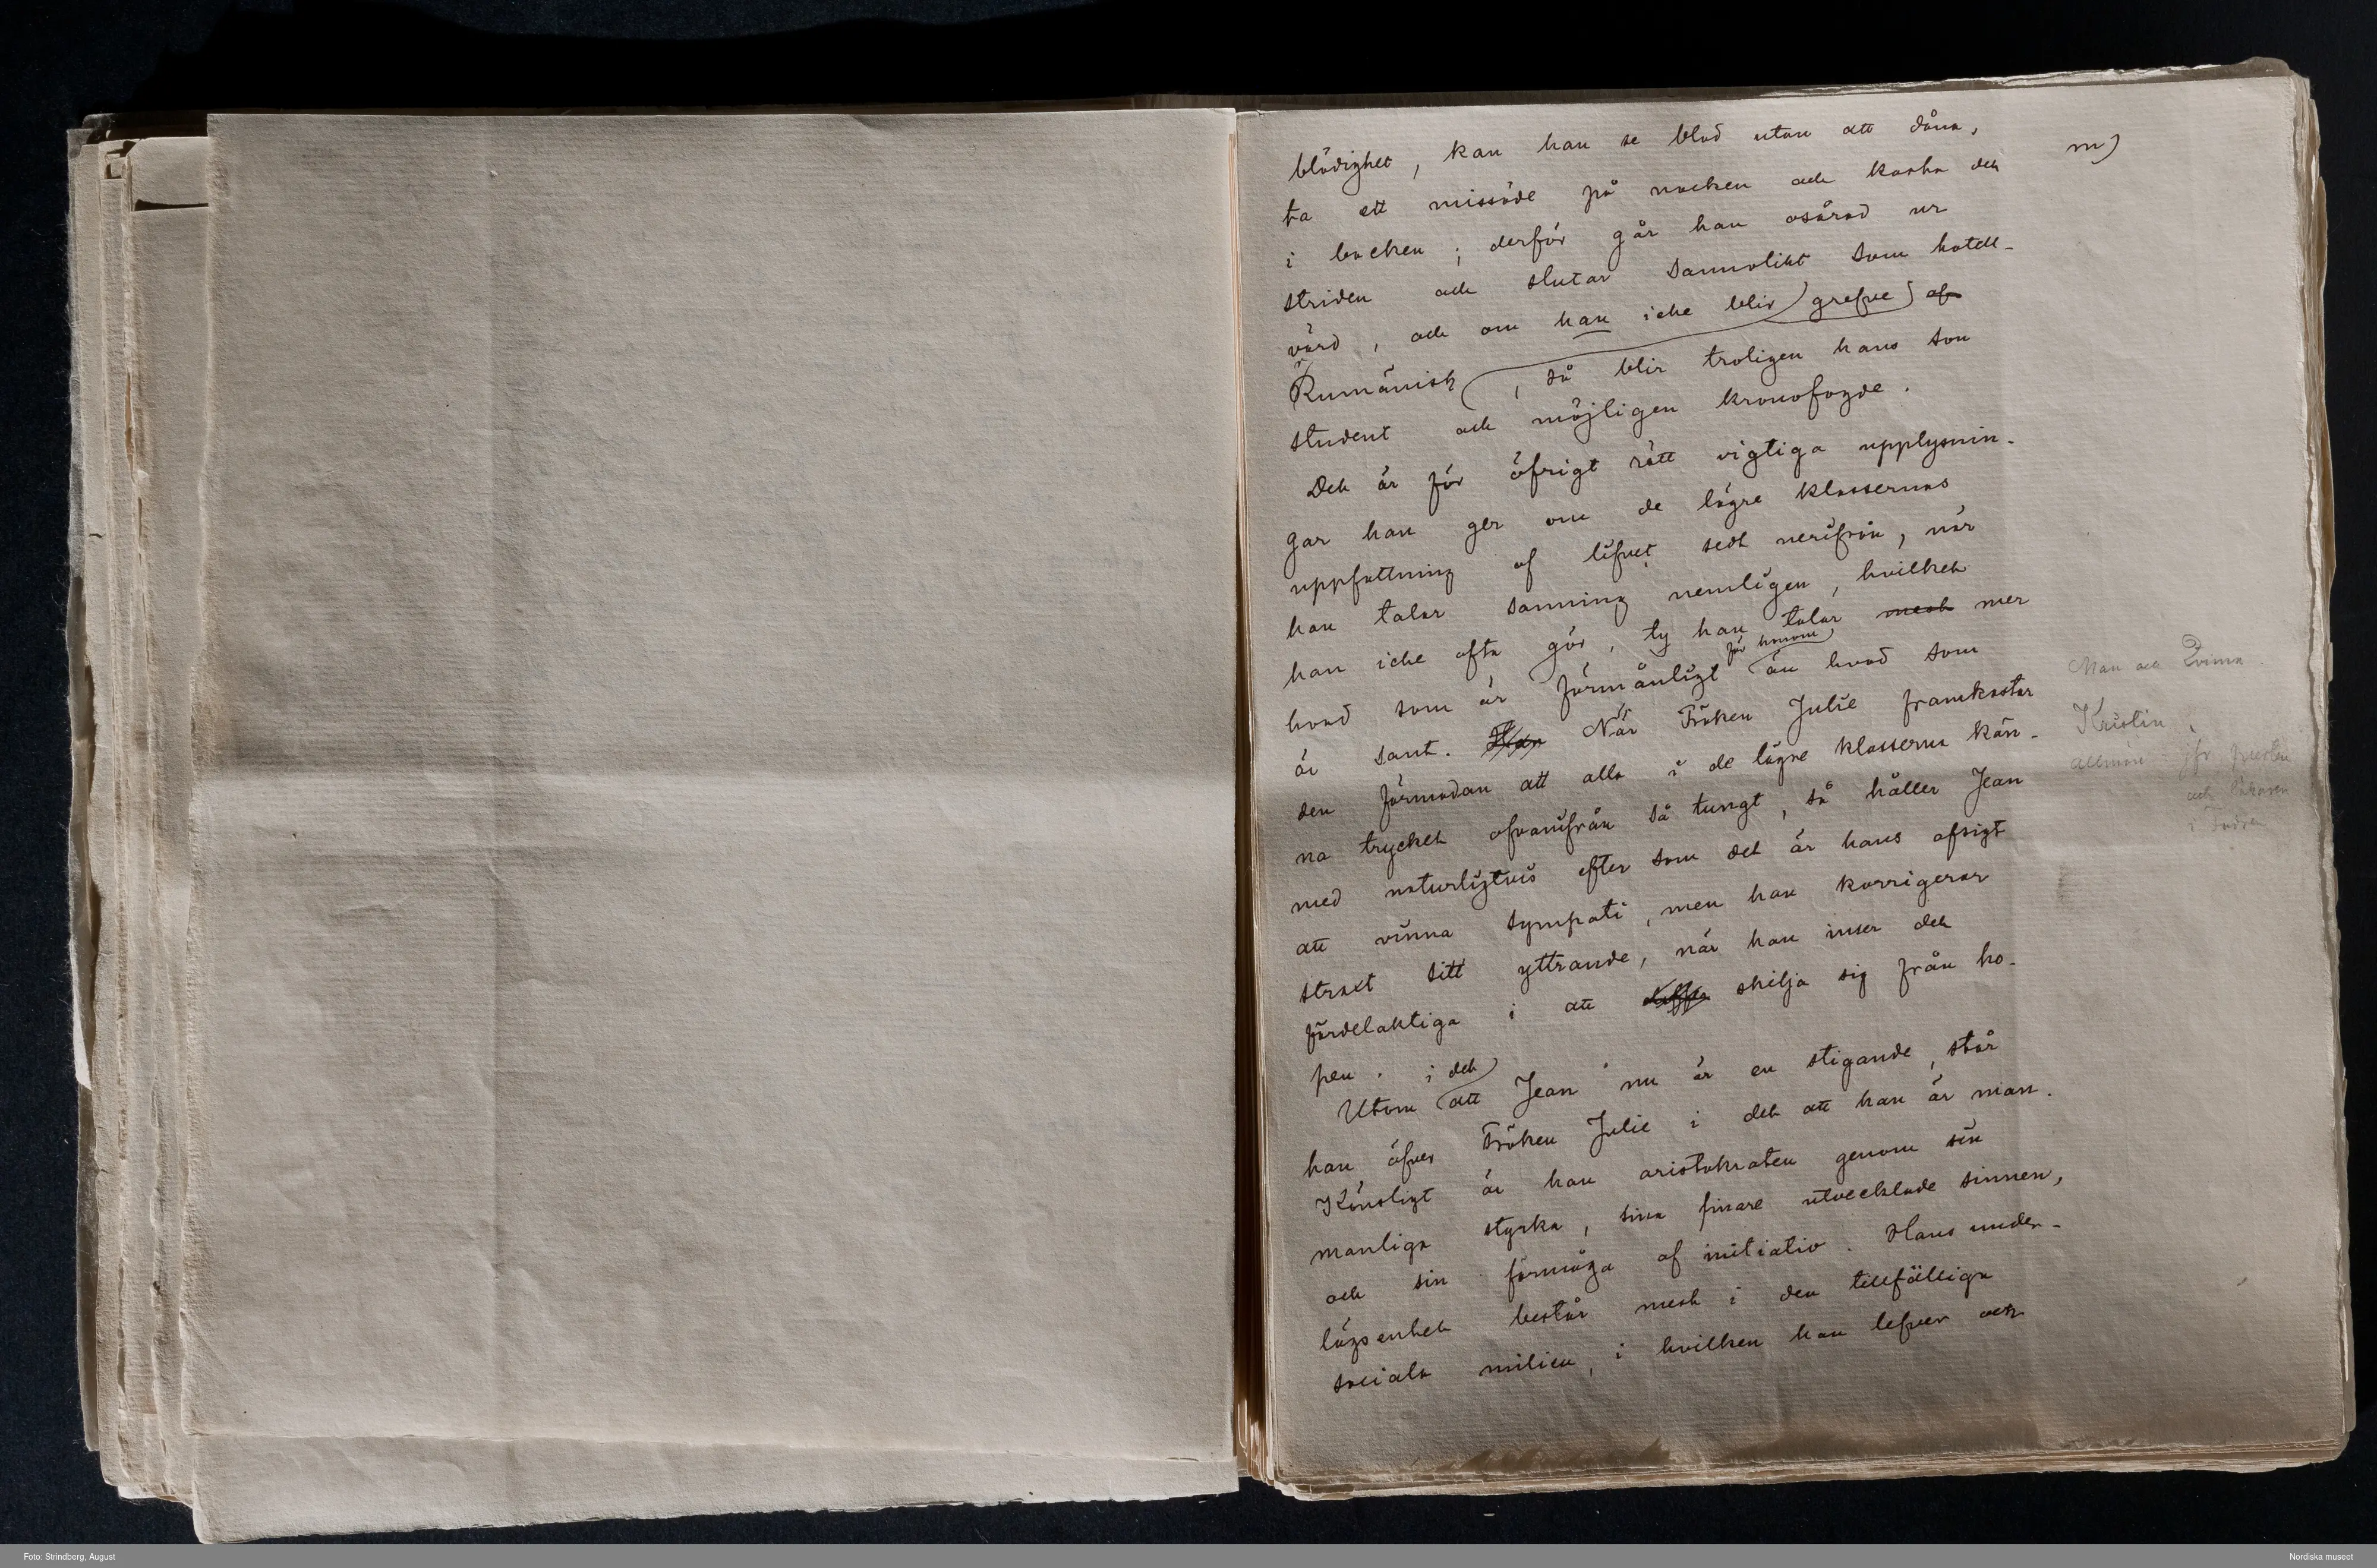 m)
blödighet, kan han se blod utan att dåna,
ta ett missöde på nacken och kasta det
i backen; derför går han osårad ur
striden och slutar sannolikt som hotell-
värd, och om han icke blir grefve af
Rumänisk, så blir troligen hans son
student och möjligen kronofogde.
Det är för öfrigt rätt vigtiga upplysnin-
gar han ger om de lägre klassernas
uppfattning af lifvet sedt nerifrån, när
han talar sanning nemligen, hvilket
han icke ofta gör, ty han talar mest mer
för honom
hvad som är förmånligt än hvad som
är sant. Han När Fröken Julie framkastar
den förmodan att alla i de lägre klasserna kän-
na trycket ofvanifrån så tungt, så håller Jean
med naturligtvis efter som det är hans afsigt
att vinna sympati, men han korrigerar
strax sitt yttrande, när han inser det
fördelaktiga i att skilja sig från ho-
pen.
i det
Utom att Jean nu är en stigande, står
han öfver Fröken Julie i det att han är man.
Könsligt är han aristokraten genom sin
manliga styrka, sina finare utvecklade sinnen,
och sin förmåga af initiativ. Hans under-
lägsenhet består mest i den tillfälliga
sociala milieu, i hvilken han lefver och
Man och Qvinna.
Kristin,
allmän jfr presten
och läkaren
i
Foto: Strindberg, August
Nordiska museet